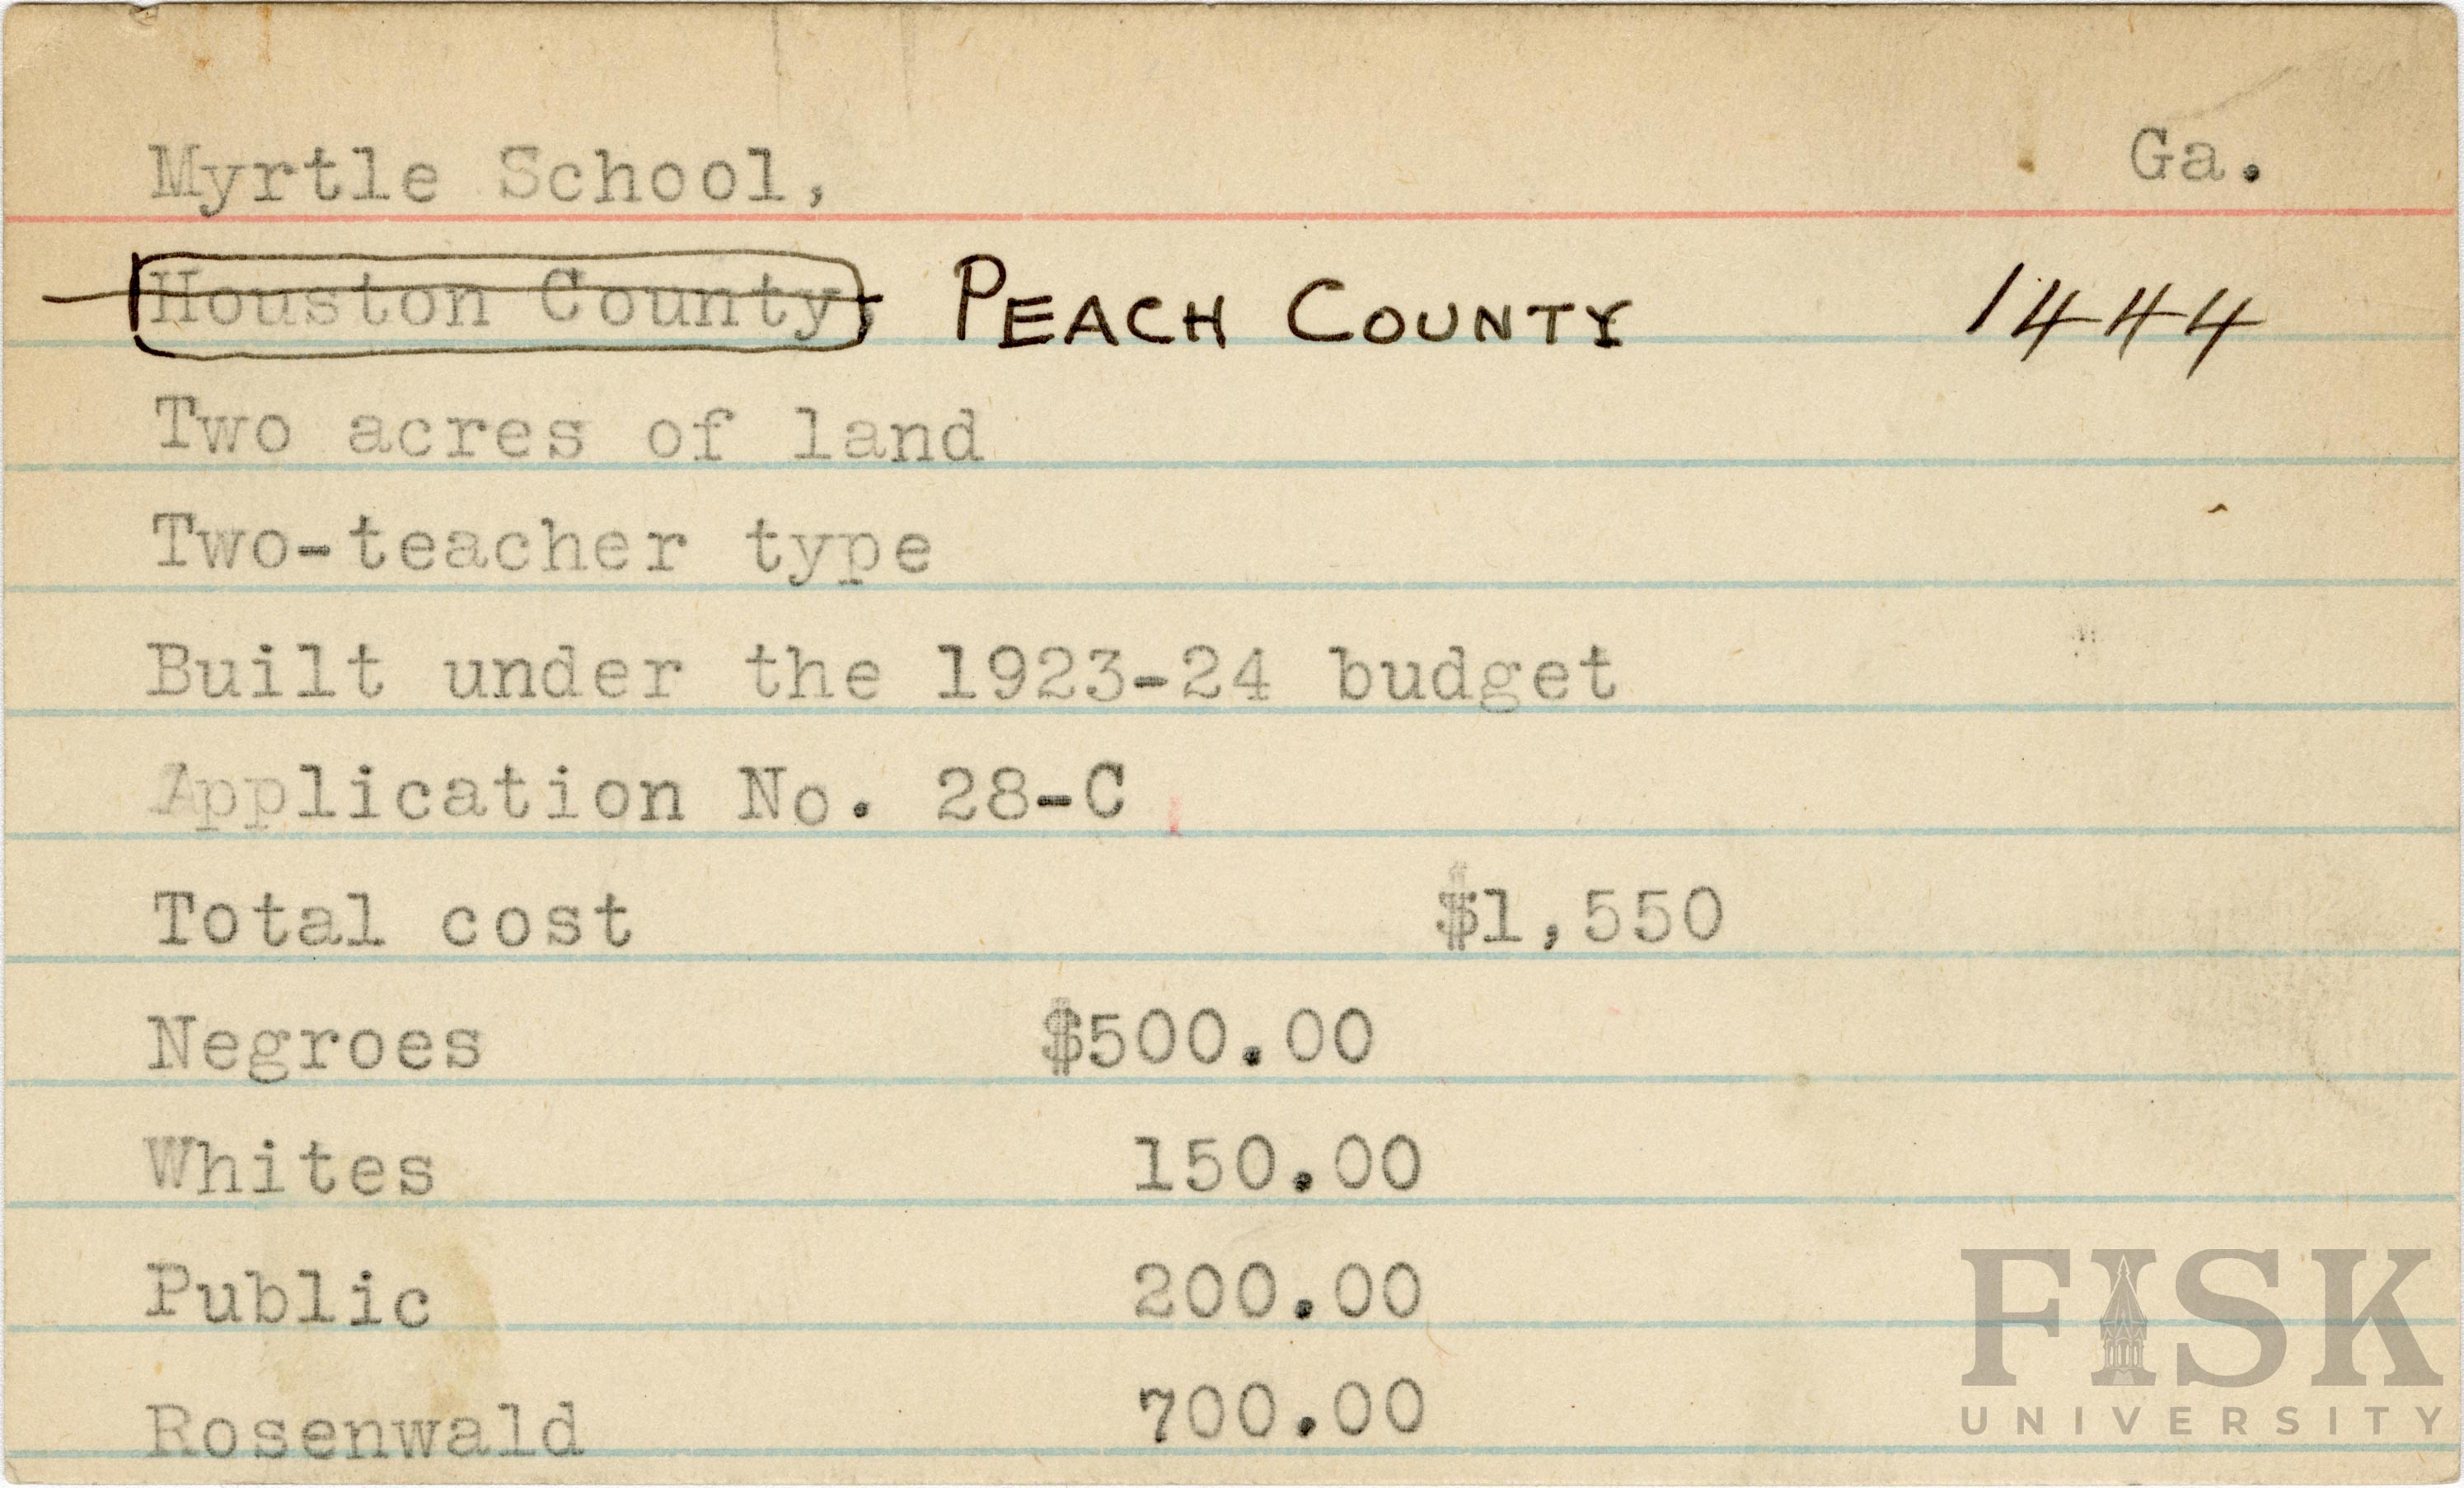 Myrtle School, Ga.
Houston County, PEACH COUNTY 1444
Two acres of land
Two-teacher type
Built under the 1923-24 budget
Application No. 28-C
Total cost $1,550
Negroes $500.00
Whites 150.00
Public 200.00
Rosenwald 700.00
FISK
UNIVERSITY